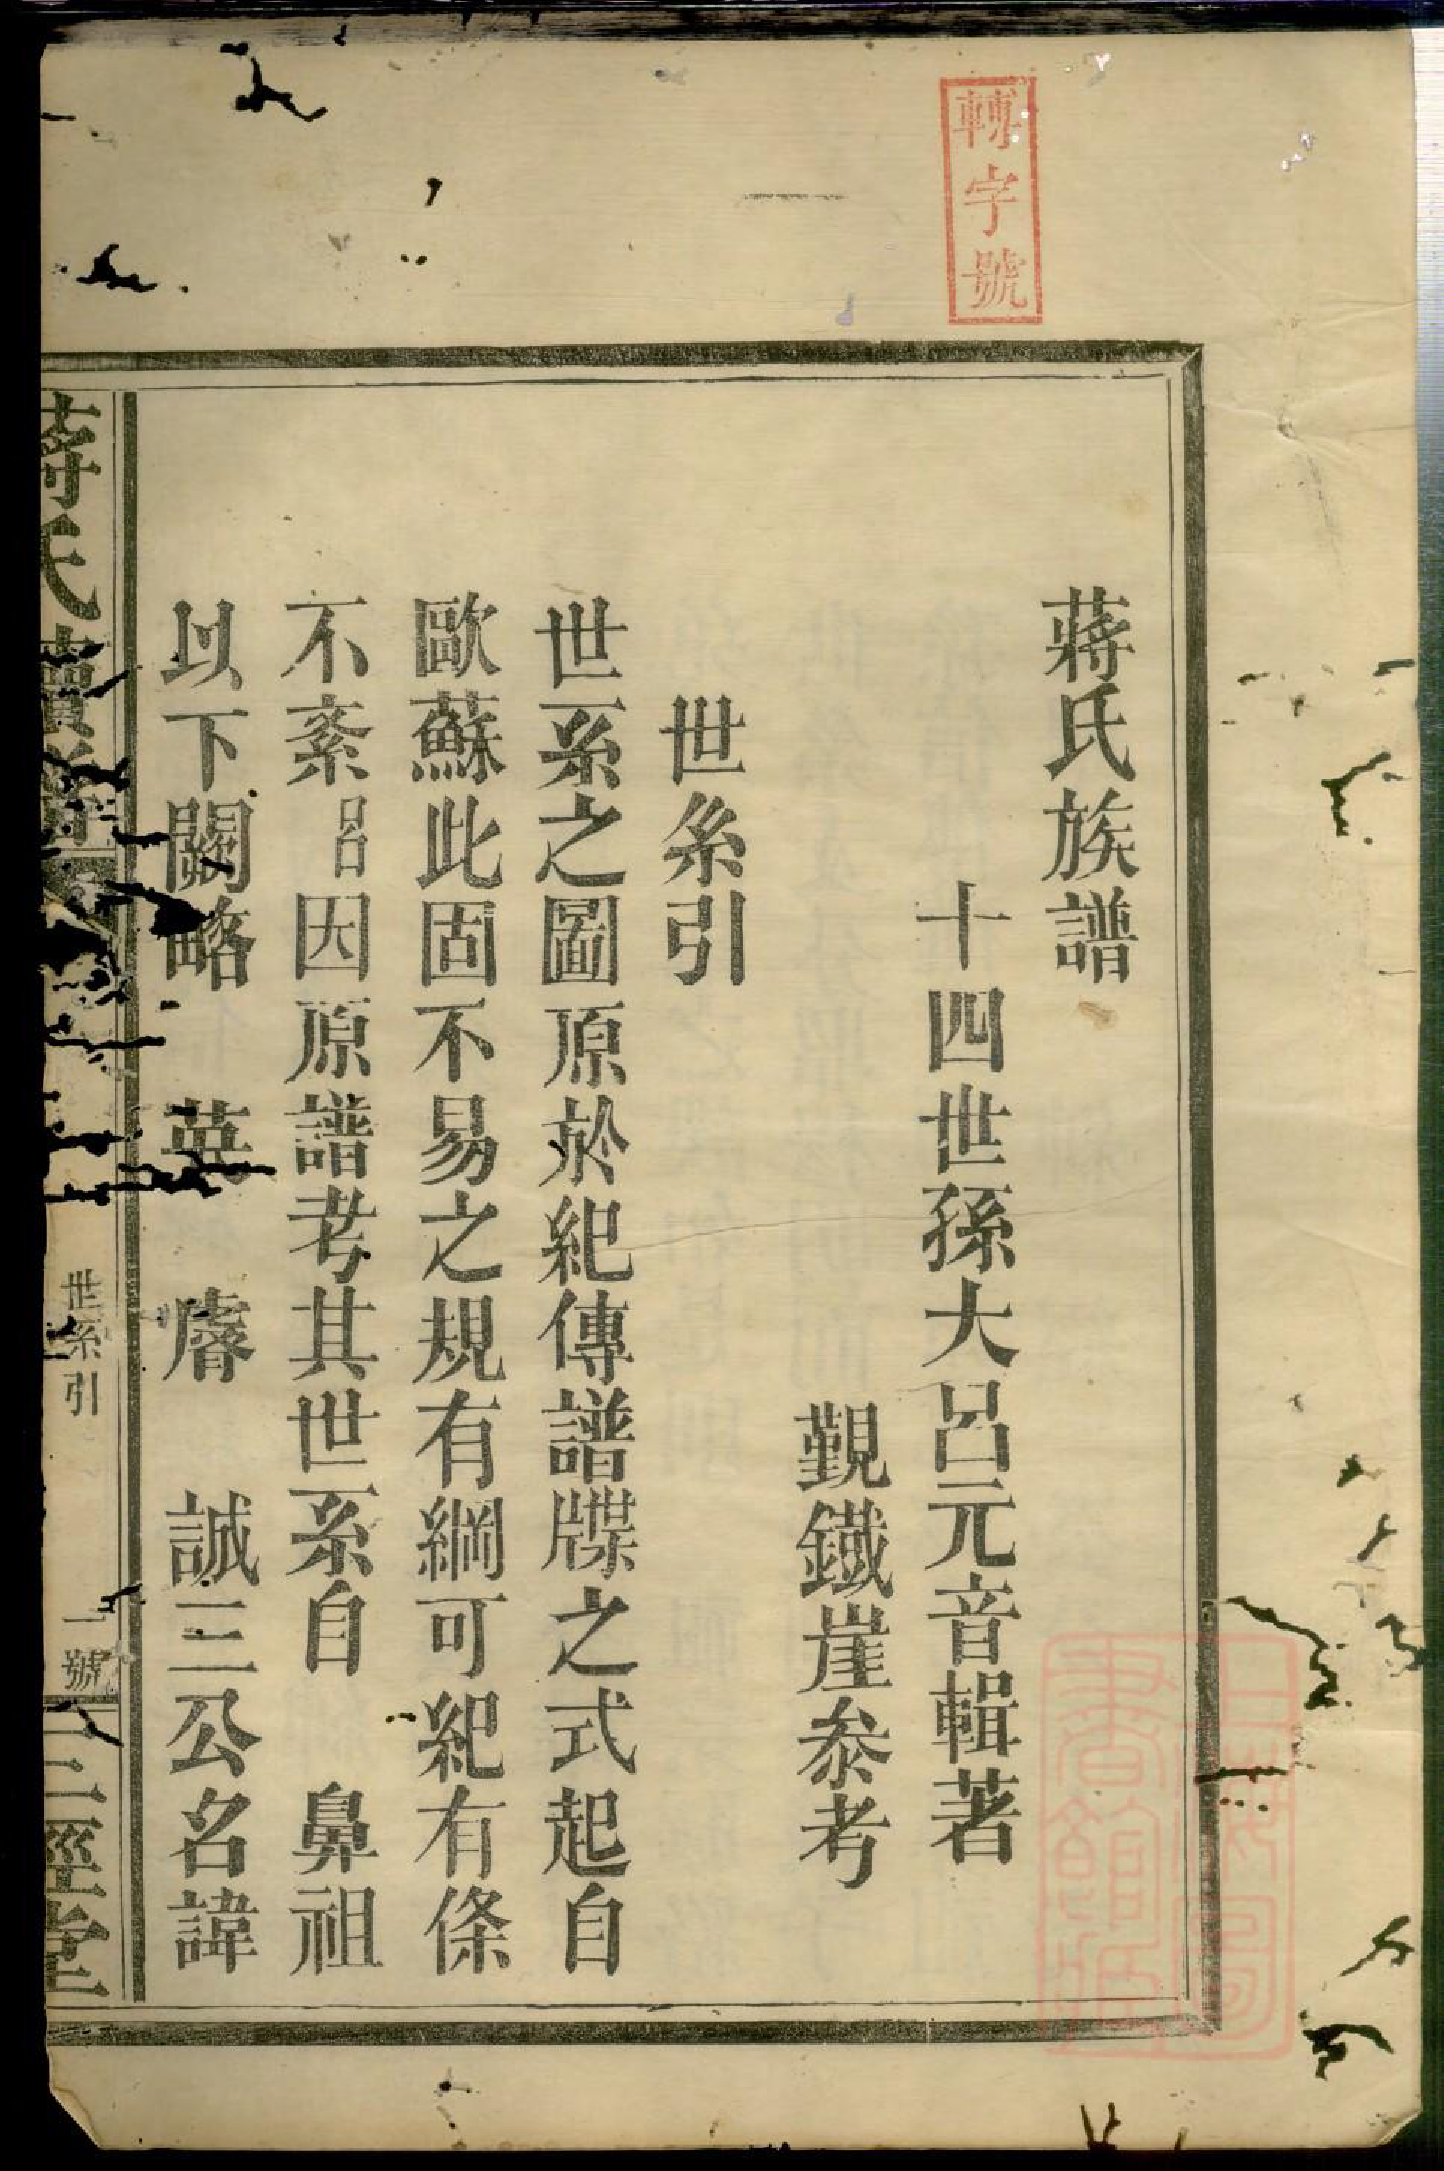 轉字號
蔣氏族譜
十四世孫大呂元音輯著
覲鐵崖參考
世系引
世系之圖原於紀傳譜牒之式起自
歐蘇此固不易之規有綱可紀有條
不紊呂因原譜考其世系自 鼻祖
以下闕略 英 睿 誠三公名諱
蔣氏續
世系引
一號
三徑堂